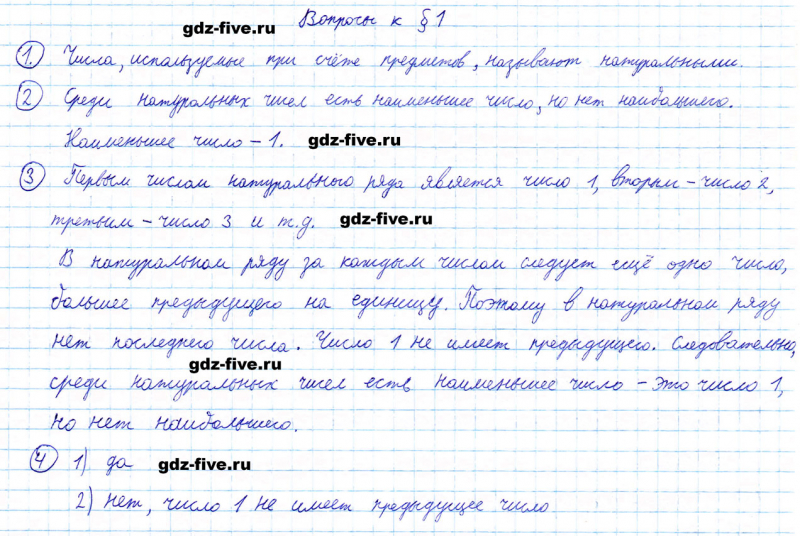 Вопросы к § 1
gdz-five.ru
1. Числа, используемые при счёте предметов, называют натуральными.
2 Среди натуральных чисел есть наименьшее число, но нет наибольшего.
Наименьшее число – 1. gdz-five.ru
3 Первым числом натурального ряда является число 1, вторым – число 2,
третьим – число 3 и т.д. gdz-five.ru
В натуральном ряду за каждым числом следует ещё одно число,
большее предыдущего на единицу. Поэтому в натуральном ряду
нет последнего числа. Число 1 не имеет предыдущего. Следовательно,
gdz-five.ru
среди натуральных чисел есть наименьшее число – это число 1,
но нет наибольшего.
4 1) да gdz-five.ru
2) нет, число 1 не имеет предыдущее число